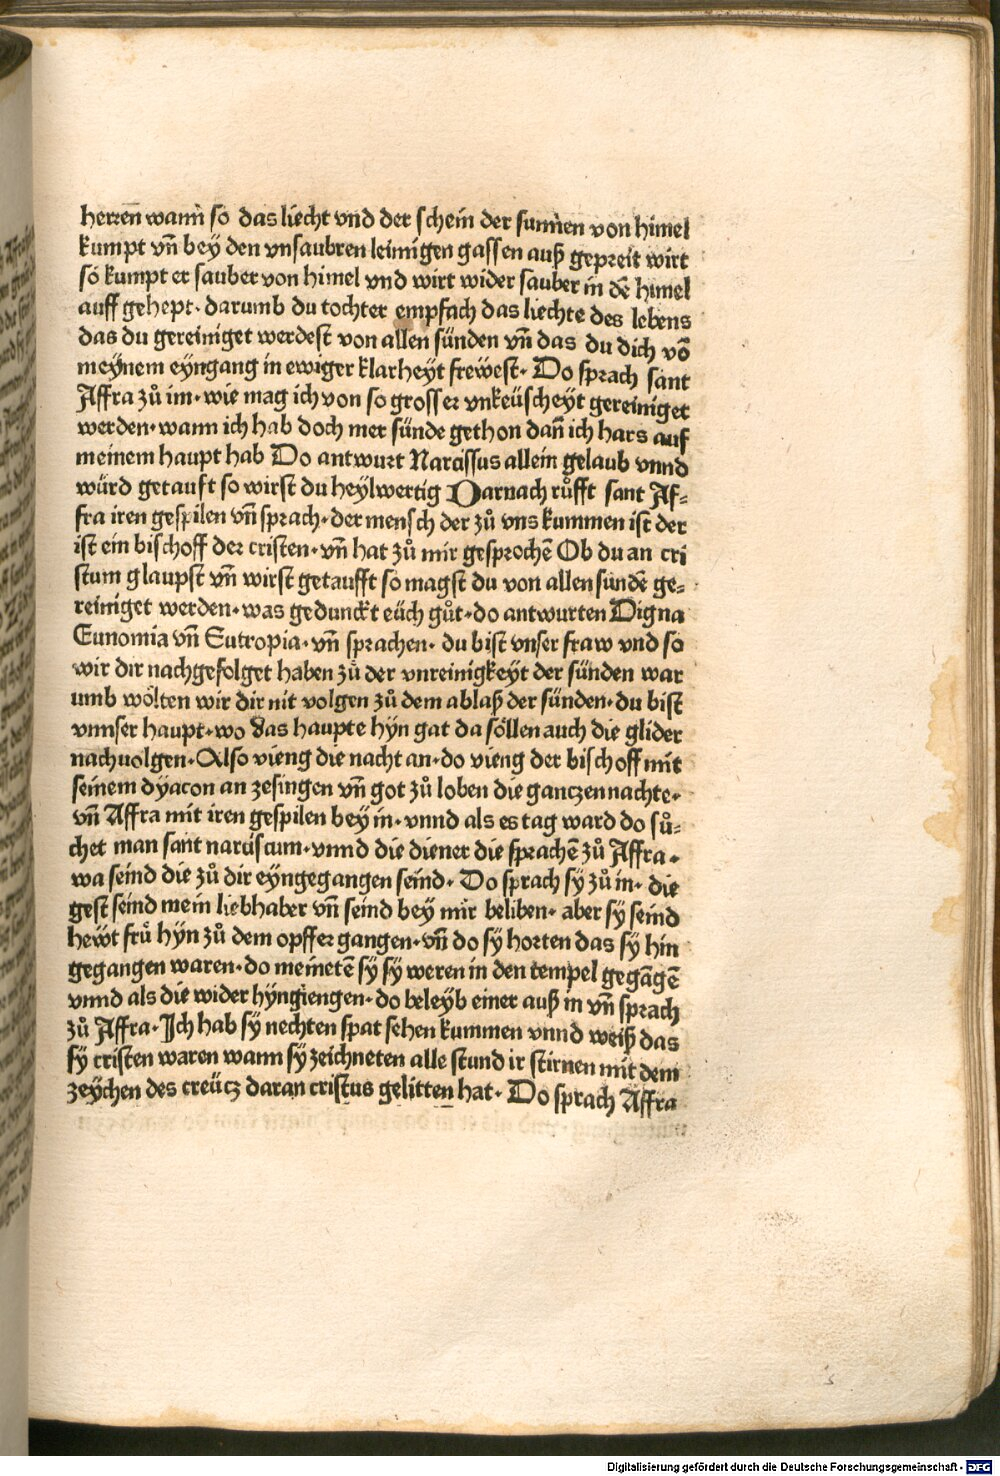 herren wann so das liecht vnd der schein der sunnen von himel
kumpt vñ bey den vnsaubren leimigen gassen auß gepreit wirt
so kumpt er sauber von himel vnd wirt wider sauber in dē himel
auff gehept· darumb du tochter empfach das liechte des lebens
das du gereiniget werdest von allen sünden vñ das du dich vō
meynem eyngang in ewiger klarheyt frewest· Do sprach sant
Affra zů im· wie mag ich von so grosser vnkeüscheyt gereiniget
werden· wann ich hab doch mer sünde gethon dañ ich hars auf
meinem haupt hab Do antwurt Narcissus allein gelaub vnnd
würd getauft so wirst du heylwertig Darnach růfft sant Af⸗
fra iren gespilen vñ sprach· der mensch der zů vns kummen ist der
ist ein bischoff der cristen· vñ hat zů mir gesprochē Ob du an cri
stum glaupst vñ wirst getaufft so magst du von allen sündē ge⸗
reiniget werden· was gedunckt eüch gůt· do antwurten Digna
Eunomia vñ Eutropia· vñ sprachen· du bist vnser fraw vnd so
wir dir nachgefolget haben zů der vnreinigkeyt der sünden war
umb wölten wir dir nit volgen zů dem ablaß der sünden· du bist
vnnser haupt· wo das haupte hyn gat da söllen auch die glider
nachuolgen· Also vieng die nacht an· do vieng der bischoff mit
seinem dyacon an zesingen vñ got zů loben die ganczen nachte·
vñ Affra mit iren gespilen bey in· vnnd als es tag ward do sů⸗
chet man sant narciscum· vnnd die diener die sprachē zů Affra·
wa seind die zů dir eyngegangen seind· Do sprach sy zů in· die
gest seind mein liebhaber vñ seind bey mir beliben· aber sy seind
hewt frů hyn zů dem opffer gangen· vñ do sy horten das sy hin
gegangen waren· do meinetē sy sy weren in den tempel gegāgē
vnnd als die wider hyngiengen· do beleyb einer auß in vñ sprach
zů Affra· Ich hab sy nechten spat sehen kummen vnnd weiß das
sy cristen waren wann sy zeichneten alle stund ir stirnen mit dem
zeychen des creücz daran cristus gelitten hat· Do sprach Affra
Digitalisierung gefördert durch die Deutsche Forschungsgemeinschaft - DFG